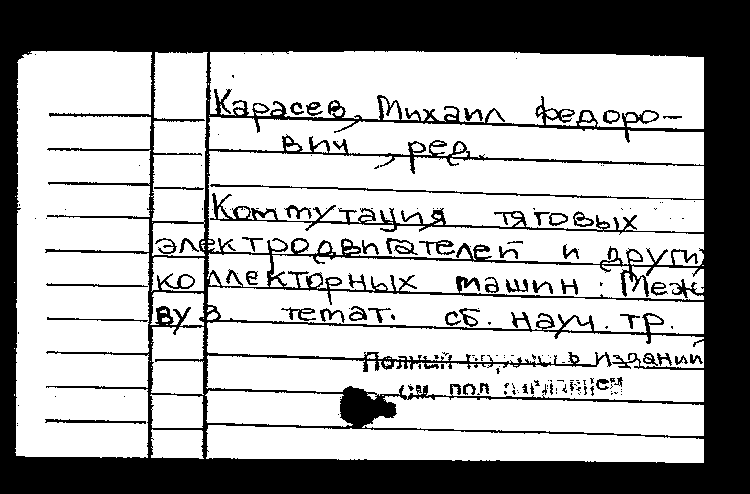 Карасев, Михаил Федоро-
вич, ред.
Коммутация тяговых
электродвигателей и других
коллекторных машин: Меж-
вуз. темат. сб. науч. тр.
Полный перечень изданий
см. под заглавием